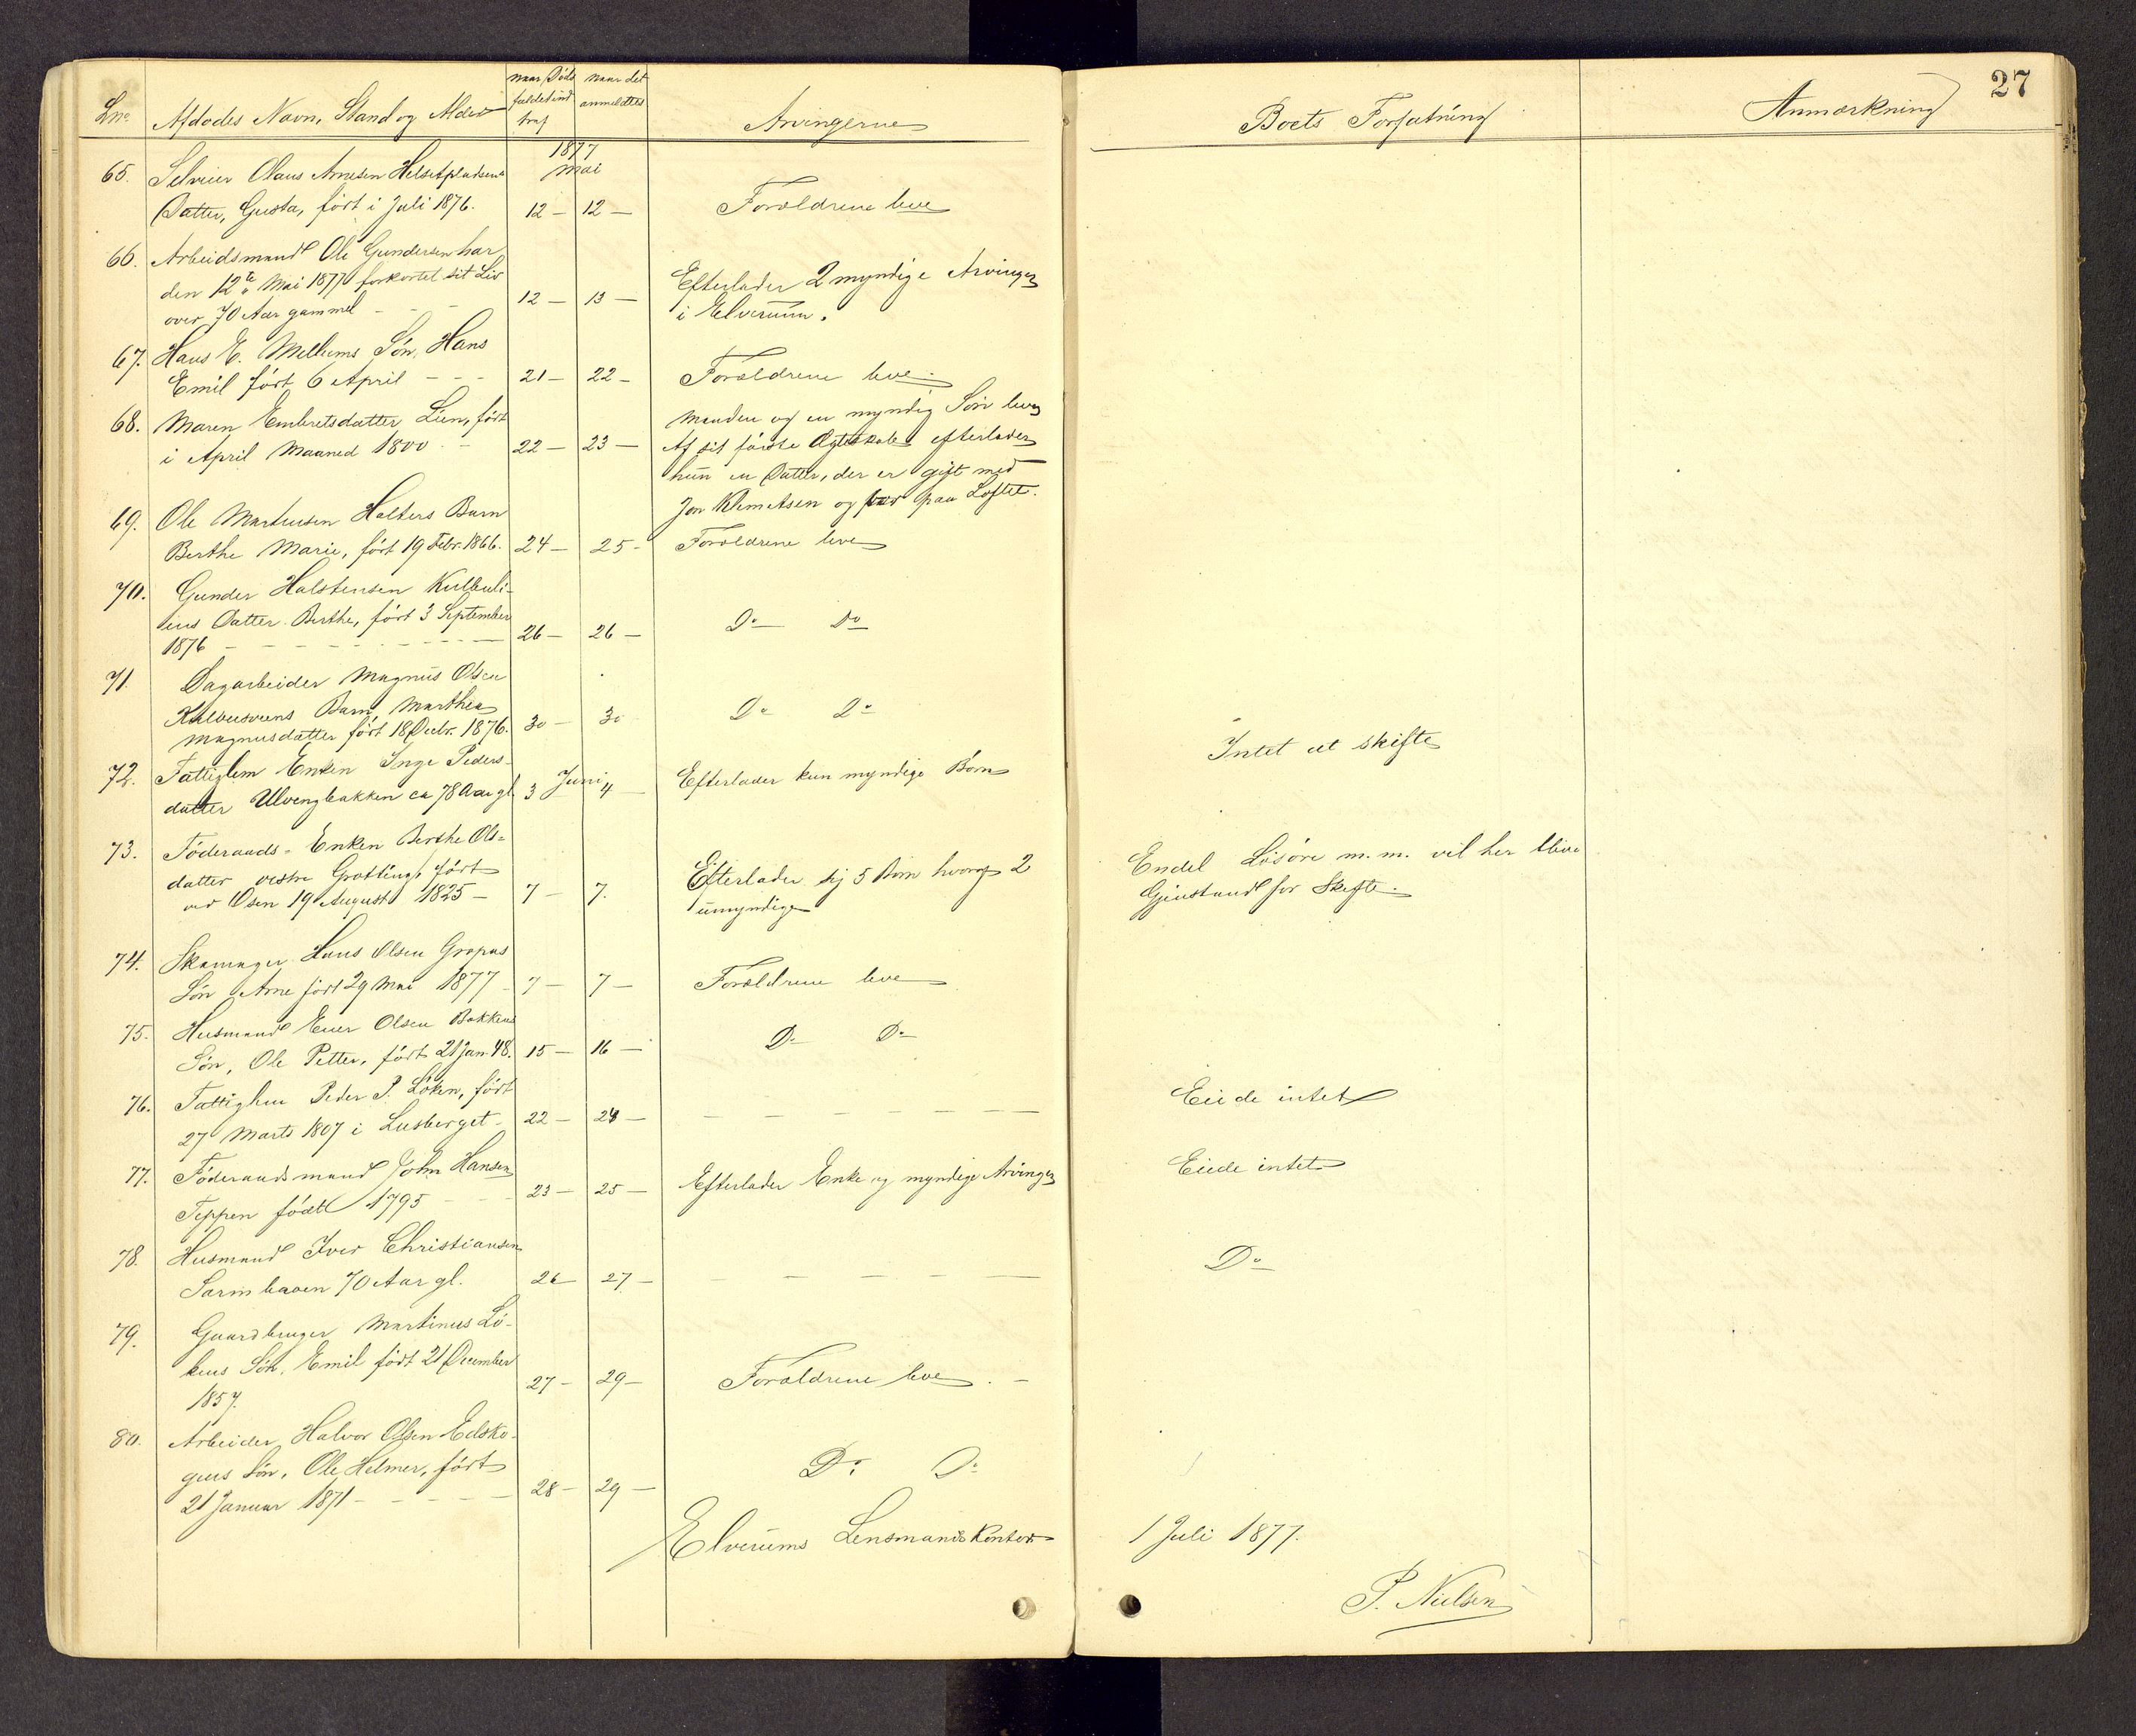 27
Lnº Afdødes Navn, Stand og Alder naar Døds naar det
faldet ind anmeldtes
traf Arvingerne Boets Forfatning Anmærkning
1877
Mai
65. Selveier Olaus Arnesen Helsetpladsens
Datter, Gusta, født i Juli 1876. 12 — 12 — Forældrene leve
66. Arbeidsmand Ole Gundersen har
den 12te Mai 1877 forkortet sit Liv
over 70 Aar gammel - - 12 — 13 — Efterlader 2 myndige Arvinger
i Elverum.
67. Hans E. Mellums Søn, Hans
Emil født 6 April - - - 21 — 22 — Forældrene leve.
68. Maren Embretsdatter Lien, født
i April Maaned 1800 - 22 — 23 — Manden og en myndig Søn leve
Af sit første Ægteskab efterlader
hun en Datter, der er gift med
Jon Klemetsen og paa Løftet.
69. Ole Martinsen Holters Barn
Berthe Marie, født 19 Febr. 1866. 24 — 25 - Forældrene leve
70. Gunder Halstensen
Datter Berthe, født 3 September
1876 - - - - - 26 — 26 — Do Do
71. Dagarbeider Magnus Olsen
Barn Marthea
Magnusdatter født 18 Decbr. 1876. 30 — 30 Do Do
72. Fattiglem Enken Inge Peders-
datter Ulvengbakken ca 78 Aar gl. 3 Juni 4 — Efterlader kun myndige Børn Intet at skifte
73. Føderaads- Enken Berthe Ols-
datter vestre Grøtting, født
ved Osen 19 August 1825 — 7 — 7. Efterlader sig 5 Børn hvoraf 2
umyndige Endel Løsøre m. m. vil her blive
Gjenstand for Skifte.
74. Skomager Hans Olsen Gropas
Søn Arne født 29 Mai 1877 - 7 — 7 — Forældrene leve
75. Husmand Ener Olsen Bakkens
Søn, Ole Petter, født 21 Jan. 48. 15 — 16 — Do Do
76. Fattiglem Peder P. Løken, født
27 Marts 1807 i Lusberget - 22 — 24 — — — — — — Eiede intet
77. Føderaadsmand John Hansen
Teppen født 1795 - - 23 — 25 — Efterlader Enke og myndige Arvinger Eiede intet
78. Husmand Iver Christiansen
70 Aar gl. 26 — 27 — — — — — — Do
79. Gaardbruger Martinus Lø-
kens Søn, Emil født 21 December
1857. 27 — 29 — Forældrene leve. -
80. Arbeider Halvor Olsen Edsko-
gens Søn, Ole Helmer, født
21 Januar 1871 - - - - 28 — 29 — Do Do
Elverums Lensmandskontor 1 Juli 1877.
P. Nielsen